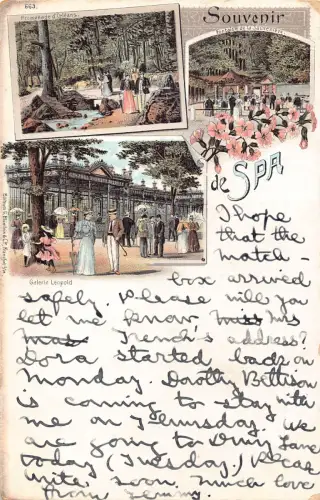 663.
Promenade d'Orléans
Souvenir
de SPA
Galerie Léopold
I hope
that the
match -
box arrived
safely. Please will you
let me know Mrs
French's address?
Dora started back on
Monday. Dorothy Bettison
is coming to stay with
me on Thursday. We
are going to Drury Lane
today (Tuesday.) Please
write soon. Much love
from